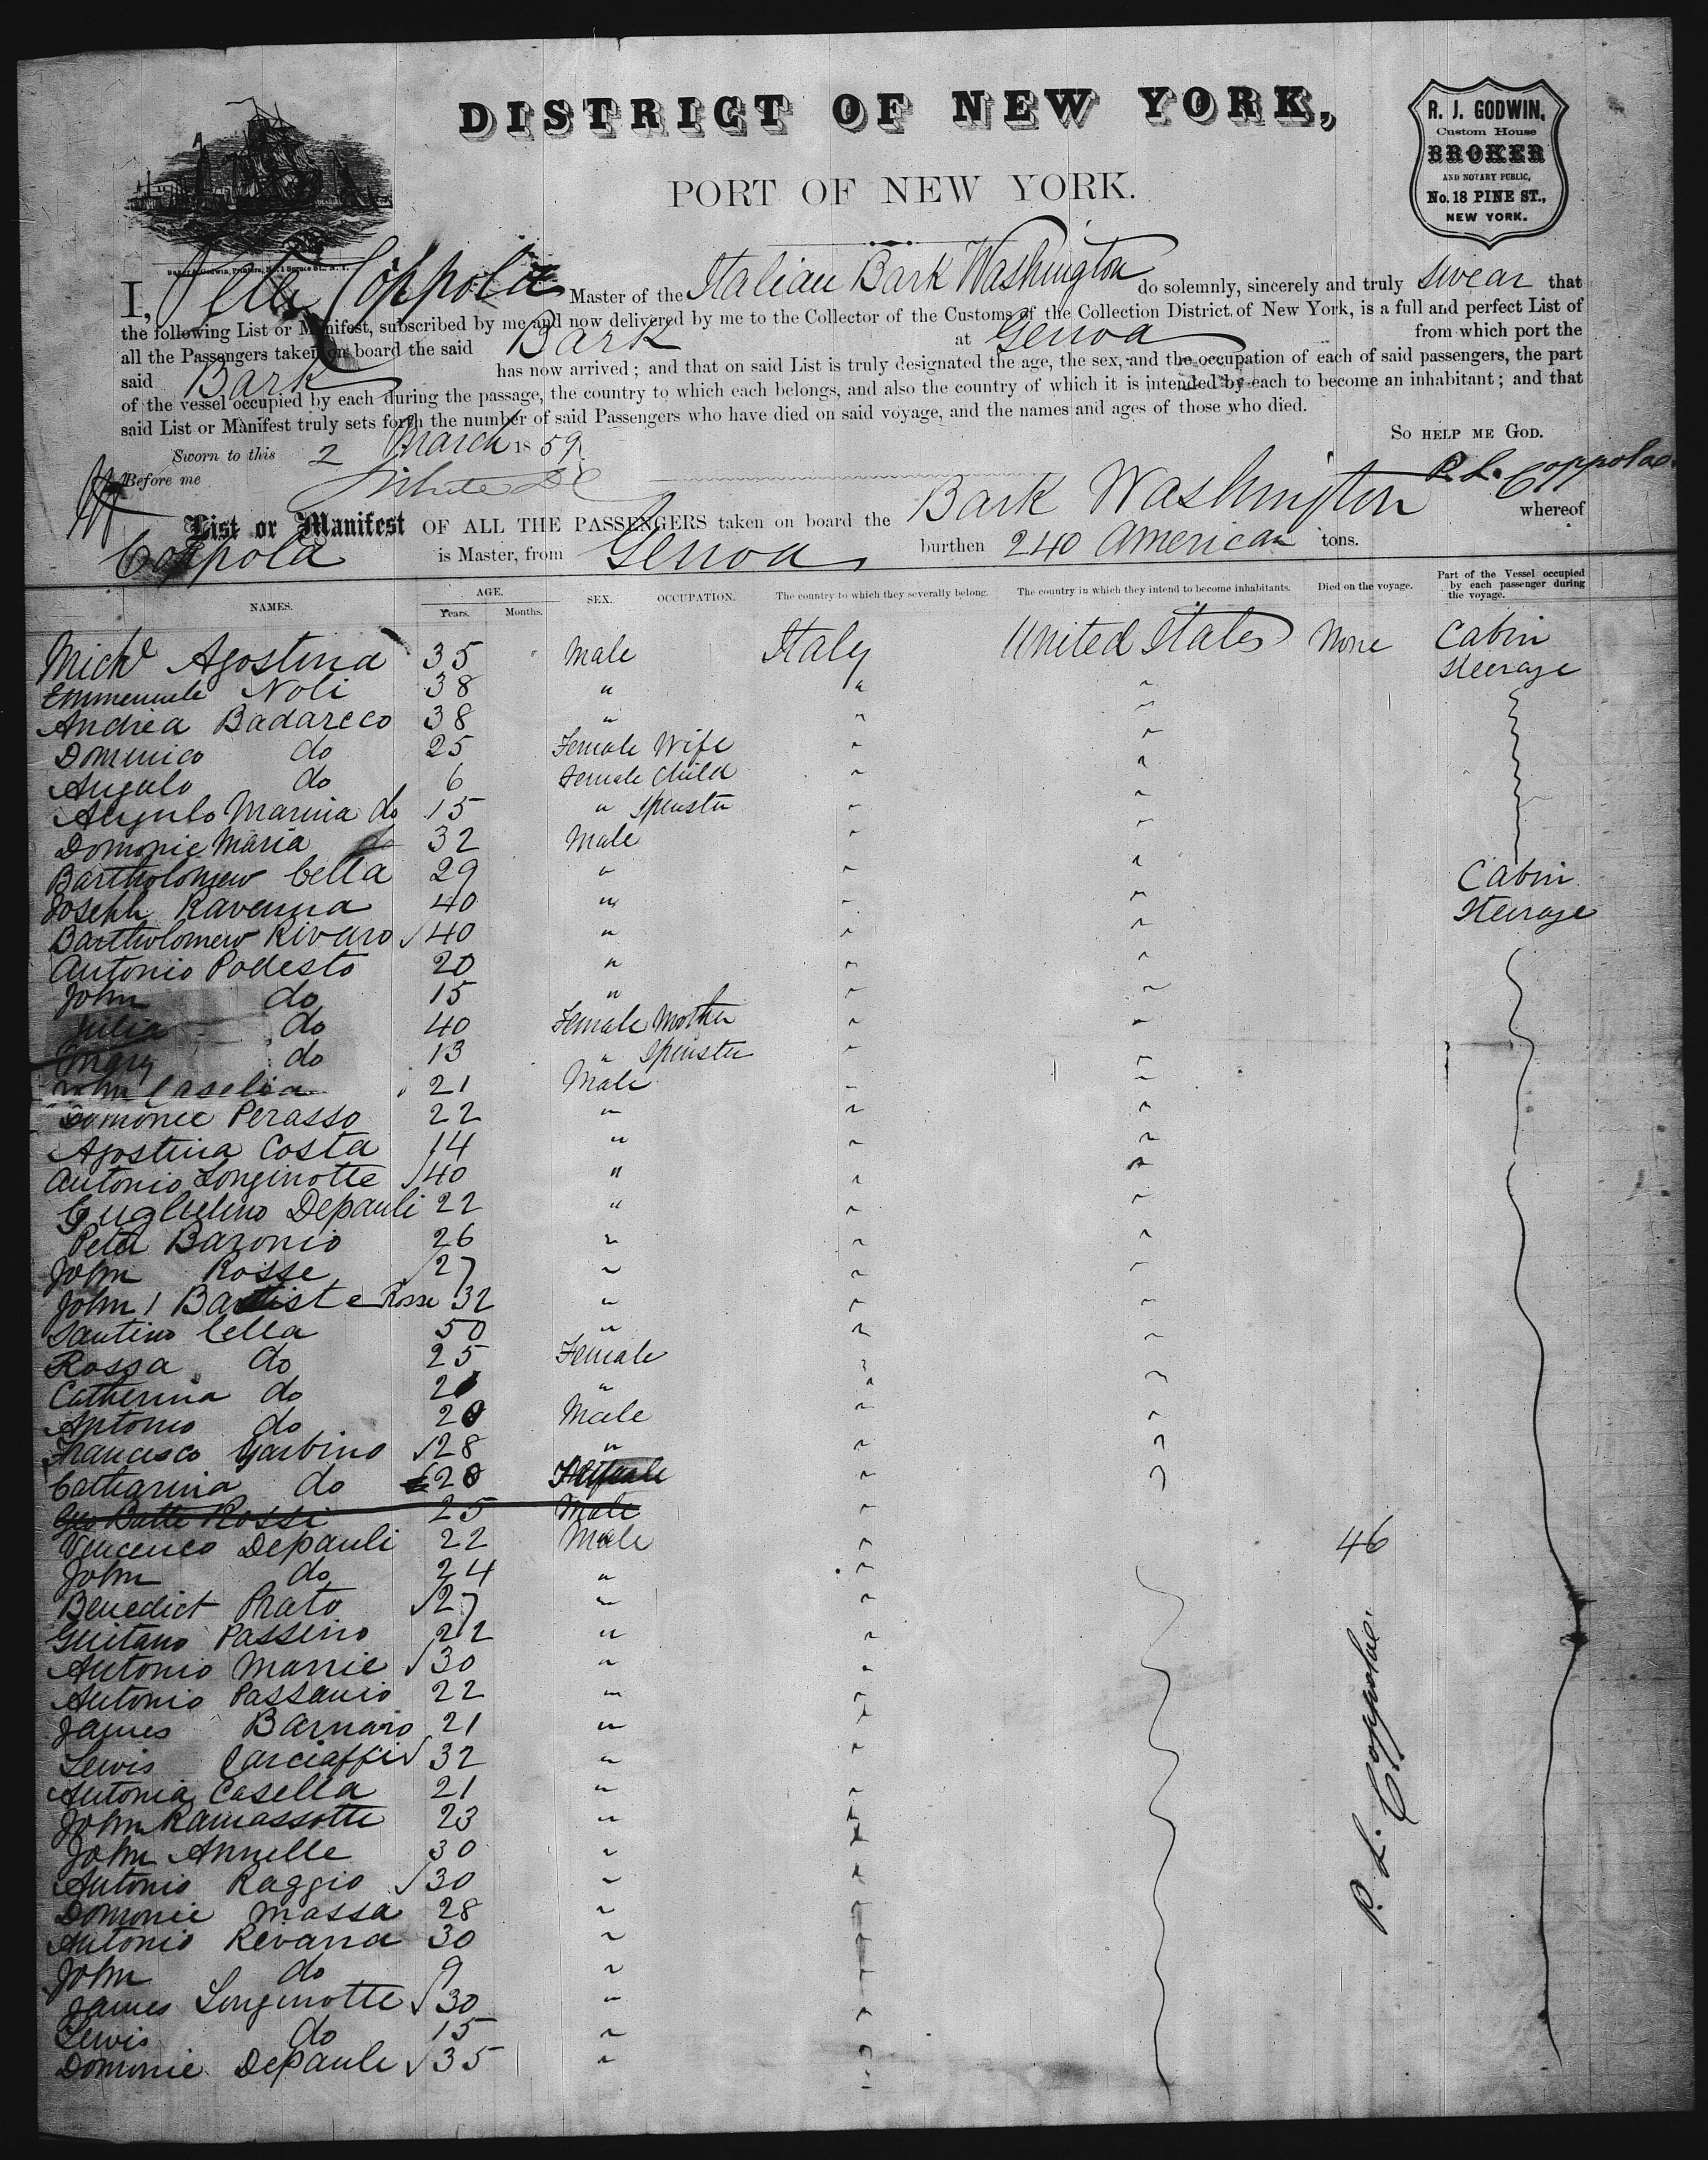 DISTRICT OF NEW YORK,
PORT OF NEW YORK.
R. J. GODWIN,
Custom House
BROKER
AND NOTARY PUBLIC,
No. 18 PINE ST.,
NEW YORK.
I, Peter Coppola Master of the Italian Bark Washington do solemnly, sincerely and truly swear that
the following List or Manifest, subscribed by me and now delivered by me to the Collector of the Customs of the Collection District of New York, is a full and perfect List of
all the Passengers taken on board the said Bark at Genoa from which port the
said Bark has now arrived; and that on said List is truly designated the age, the sex, and the occupation of each of said passengers, the part
of the vessel occupied by each during the passage, the country to which each belongs, and also the country of which it is intended by each to become an inhabitant; and that
said List or Manifest truly sets forth the number of said Passengers who have died on said voyage, and the names and ages of those who died.
SO HELP ME GOD.
Sworn to this 2 March 1859
P. L. Coppola
Before me
List or Manifest OF ALL THE PASSENGERS taken on board the Bark Washington whereof
Coppola is Master, from Genoa burthen 240 American tons.
NAMES. AGE. Years. Months. SEX. OCCUPATION. The country to which they severally belong. The country in which they intend to become inhabitants. Died on the voyage. Part of the Vessel occupied by each passenger during the voyage.
Michl Agostina 35 Male Italy United States None Cabin
Emmenuele Noli 38 " " " Steerage
Andrea Badareco 38 " " "
Dominico do 25 Female Wife " "
Angulo do 6 Female Child " "
Angulo Marina do 15 " Spinster " "
Domonie Maria do 32 Male " "
Bartholomew Cella 29 " " " Cabin
Joseph Ravenna 40 " " " Steerage
Bartholomew Rivaro √ 40 " " "
Antonio Podesto 20 " " "
John do 15 " " "
Julia do 40 Female Mother " "
Mary do 13 " Spinster " "
John Caselia 21 Male " "
Domonee Perasso 22 " " "
Agostina Costa 14 " " "
Antonio Longinotte √ 40 " " "
Guglielmo Depauli 22 " " "
Peter Baronio 26 " " "
John Rosse √ 27 " " "
John Batiste Rosse 32 " " "
Santino Cella 50 " " "
Rossa do 25 Female " "
Catherina do 20 " " "
Antonio do 20 Male " "
Francisco Garbino √ 28 " " "
Catharina do 28 Female " "
Geo Batte Rossi 25 Male "
Vencenco Depauli 22 Male " 46
John do 24 " "
Benedict Prato √ 27 " "
Guitano Passino 22 " "
Antonio Marrie √ 30 " "
Antonio Passanio 22 " "
James Barnaro 21 " "
Lewis Carciaffi √ 32 " "
Antonia Casella 21 " "
John Ramassotte 23 " "
John Annelle 30 " "
Antonio Raggio √ 30 " "
Domonie Massa 28 " "
Antonio Revana 30 " "
John do 9 " "
James Longinotte √ 30 " "
Lewis do 15 " "
Domonie Depaule √ 35 " "
P. L. Coppola